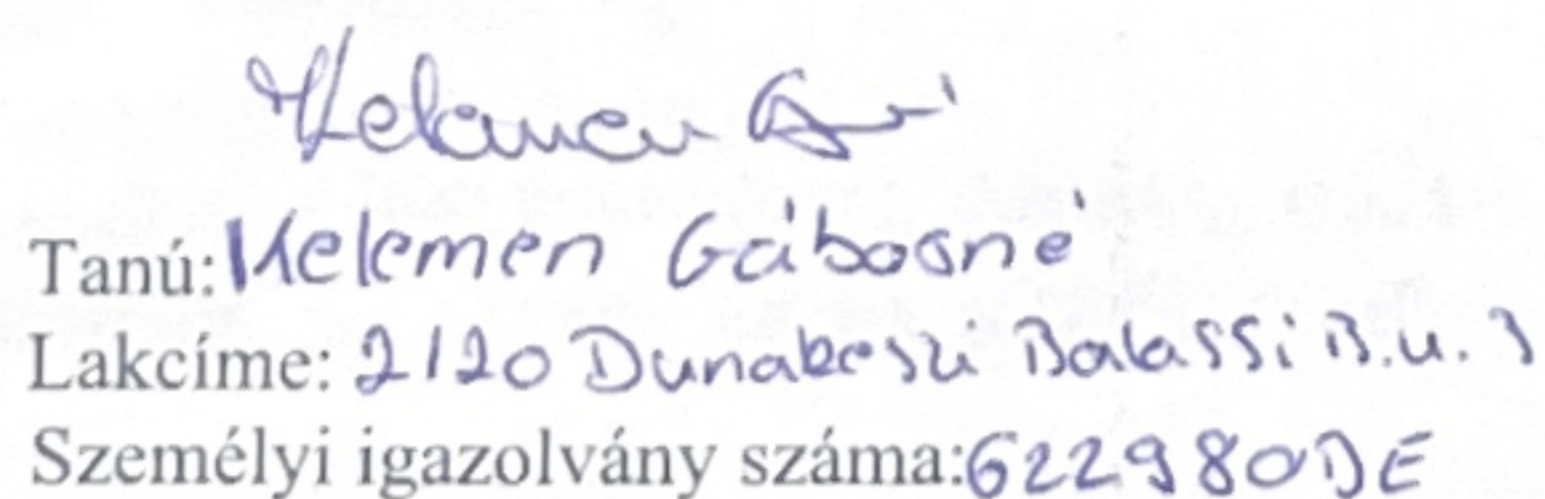 Kelemen
Tanú: Kelemen Gáborné
Lakcíme: 2120 Dunakeszi Balassi B.u.
Személyi igazolvány száma: 622980DE